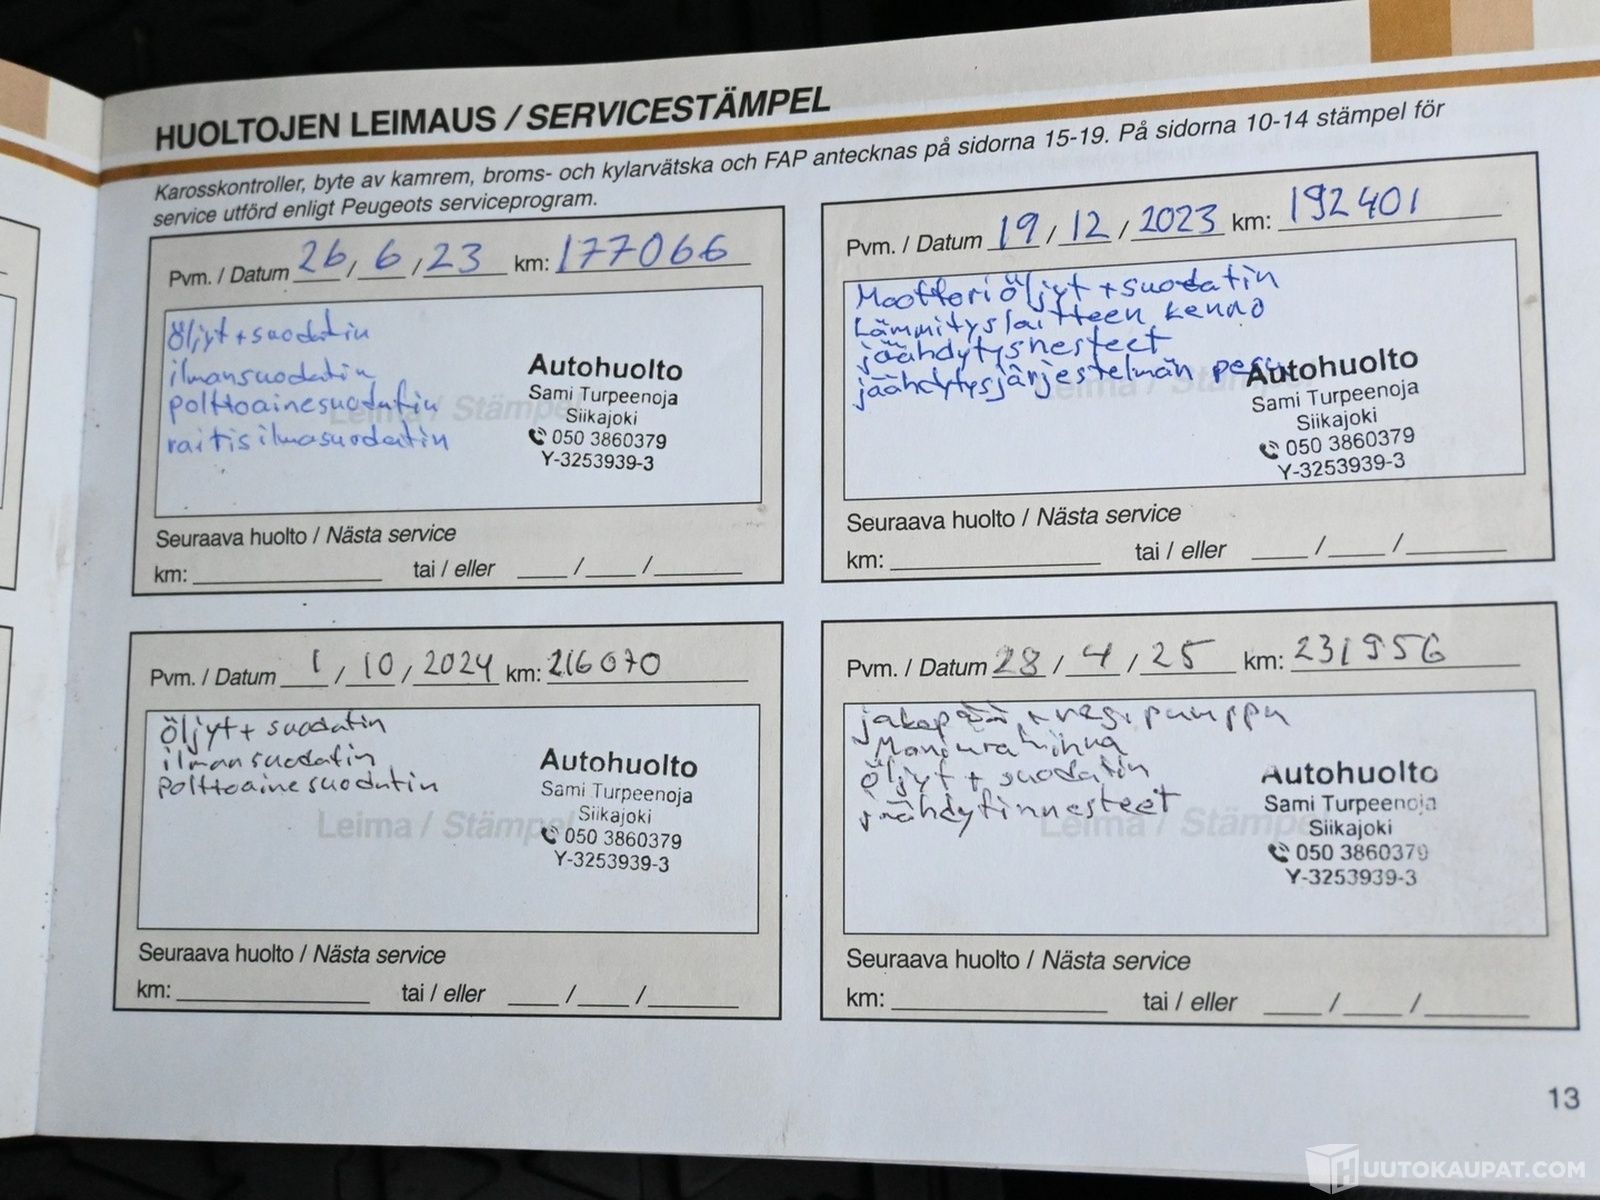 HUOLTOJEN LEIMAUS / SERVICESTÄMPEL
Karosskontroller, byte av kamrem, broms- och kylarvätska och FAP antecknas på sidorna 15-19. På sidorna 10-14 stämpel för
service utförd enligt Peugeots serviceprogram.
Pvm. / Datum 26 / 6 / 23 km: 177066
öljyt + suodatin
ilmansuodatin
polttoainesuodatin
raitisilmasuodatin
Leima / Stämpel
Autohuolto
Sami Turpeenoja
Siikajoki
050 3860379
Y-3253939-3
Seuraava huolto / Nästa service
km: tai / eller / /
Pvm. / Datum 19 / 12 / 2023 km: 192401
Moottoriöljyt + suodatin
Lämmityslaitteen kenno
jäähdytysnesteet
jäähdytysjärjestelmän pesu
Leima / Stämpel
Autohuolto
Sami Turpeenoja
Siikajoki
050 3860379
Y-3253939-3
Seuraava huolto / Nästa service
km: tai / eller / /
Pvm. / Datum 1 / 10 / 2024 km: 216070
öljyt + suodatin
ilmansuodatin
Polttoainesuodatin
Leima / Stämpel
Autohuolto
Sami Turpeenoja
Siikajoki
050 3860379
Y-3253939-3
Seuraava huolto / Nästa service
km: tai / eller / /
Pvm. / Datum 28 / 4 / 25 km: 231956
jakopää + vesipumppu
öljyt + suodatin
jäähdytinnesteet
Leima / Stämpel
Autohuolto
Sami Turpeenoja
Siikajoki
050 3860379
Y-3253939-3
Seuraava huolto / Nästa service
km: tai / eller / /
13
HUUTOKAUPAT.COM